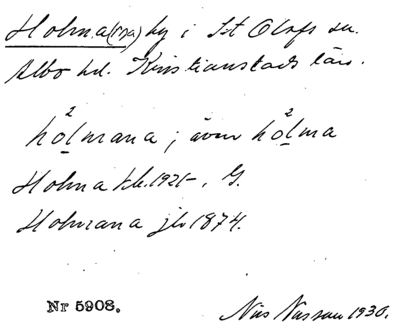 Holma(na) by i St Olofs sn.
Albo hd. Kristianstads län.
ho²lmana; även ho²lma
Holma kb. 1921-, G.
Holmana jb 1874.
Nr 5908. Nils Nilsson 1930.